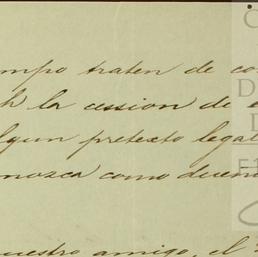 mpo traten de co
la cession de
lgun pretexto lega
nozca como dueñ
uestro amigo, el